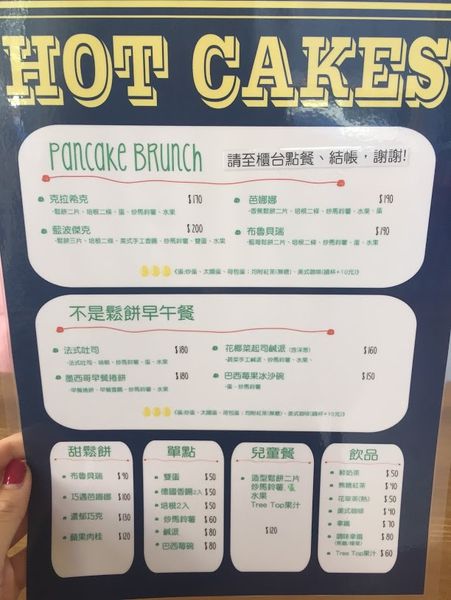 HOT CAKES
Pancake Brunch 請至櫃台點餐、結帳，謝謝!
克拉希克 $170
·鬆餅二片、培根二條、蛋、炒馬鈴薯、水果
藍波傑克 $200
·鬆餅三片、培根二條、美式手工香腸、炒馬鈴薯、雙蛋、水果
芭娜娜 $190
·香蕉鬆餅二片、培根二條、炒馬鈴薯、水果、蛋
布魯貝瑞 $190
·藍莓鬆餅二片、培根二條、炒馬鈴薯、蛋、水果
(蛋:炒蛋、太陽蛋、荷包蛋；均附紅茶(無糖)、美式咖啡(續杯+10元))
不是鬆餅早午餐
法式吐司 $180
·法式吐司、培根、炒馬鈴薯、蛋、水果
墨西哥早餐捲餅 $180
花椰菜起司鹹派 (含洋蔥) $160
·蔬菜手工鹹派、炒馬鈴薯、水果
巴西莓果冰沙碗 $150
·蛋、炒馬鈴薯
(蛋:炒蛋、太陽蛋、荷包蛋；均附紅茶(無糖)、美式咖啡(續杯+10元))
甜鬆餅
布魯貝瑞 $90
巧遇芭娜娜 $100
濃郁巧克 $130
蘋果肉桂 $120
單點
雙蛋 $50
德國香腸2入 $50
培根2入 $50
炒馬鈴薯 $60
鹹派 $80
巴西莓碗 $80
兒童餐
造型鬆餅二片
炒馬鈴薯、蛋
水果
Tree Top果汁
$120
飲品
鮮奶茶 $50
無糖紅茶 $40
花草茶(熱) $50
美式咖啡 $40
拿鐵 $70
調味拿鐵 $80
Tree Top果汁 $60